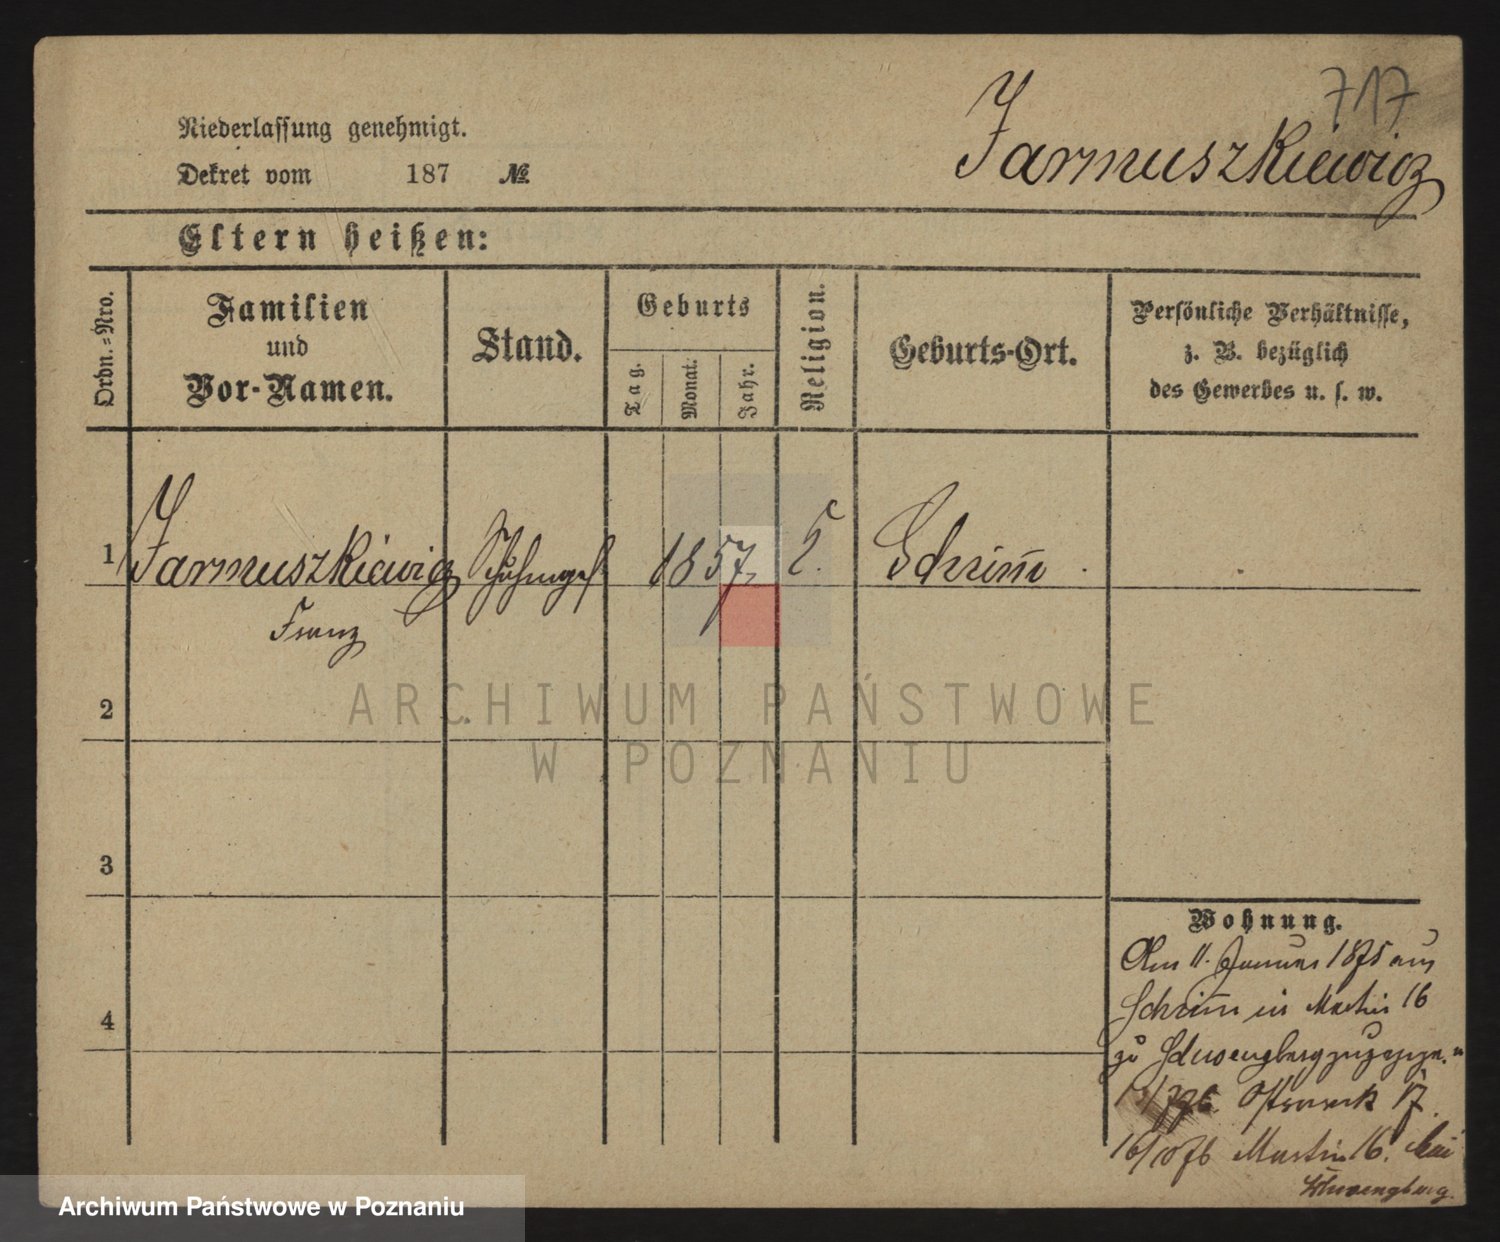 717
Jarmuszkiewicz
Niederlassung genehmigt.
Dekret vom 187 №
Eltern heißen:
Ordn.=Nro.
Familien
und
Vor-Namen.
Stand.
Geburts
Tag.
Monat.
Jahr.
Religion.
Geburts-Ort.
Persönliche Verhältnisse,
z. B. bezüglich
des Gewerbes u. s. w.
1 Jarmuszkiewicz Schuhmges. 1857 Schrim̄
Franz
2
3
4
Wohnung.
Am 11. Januar 1875 aus
Schrim̄ in Martin 16
zu Schwengberg
Ostrowek 17.
16/10 76 Martin 16. bei
Schwengberg.
ARCHIWUM PAŃSTWOWE
W POZNANIU
Archiwum Państwowe w Poznaniu